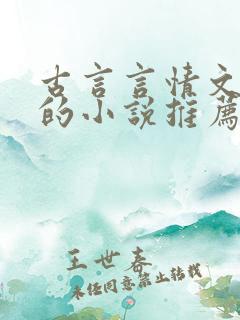 古言言情文
的小说推薦
王世春
未经同意禁止转载